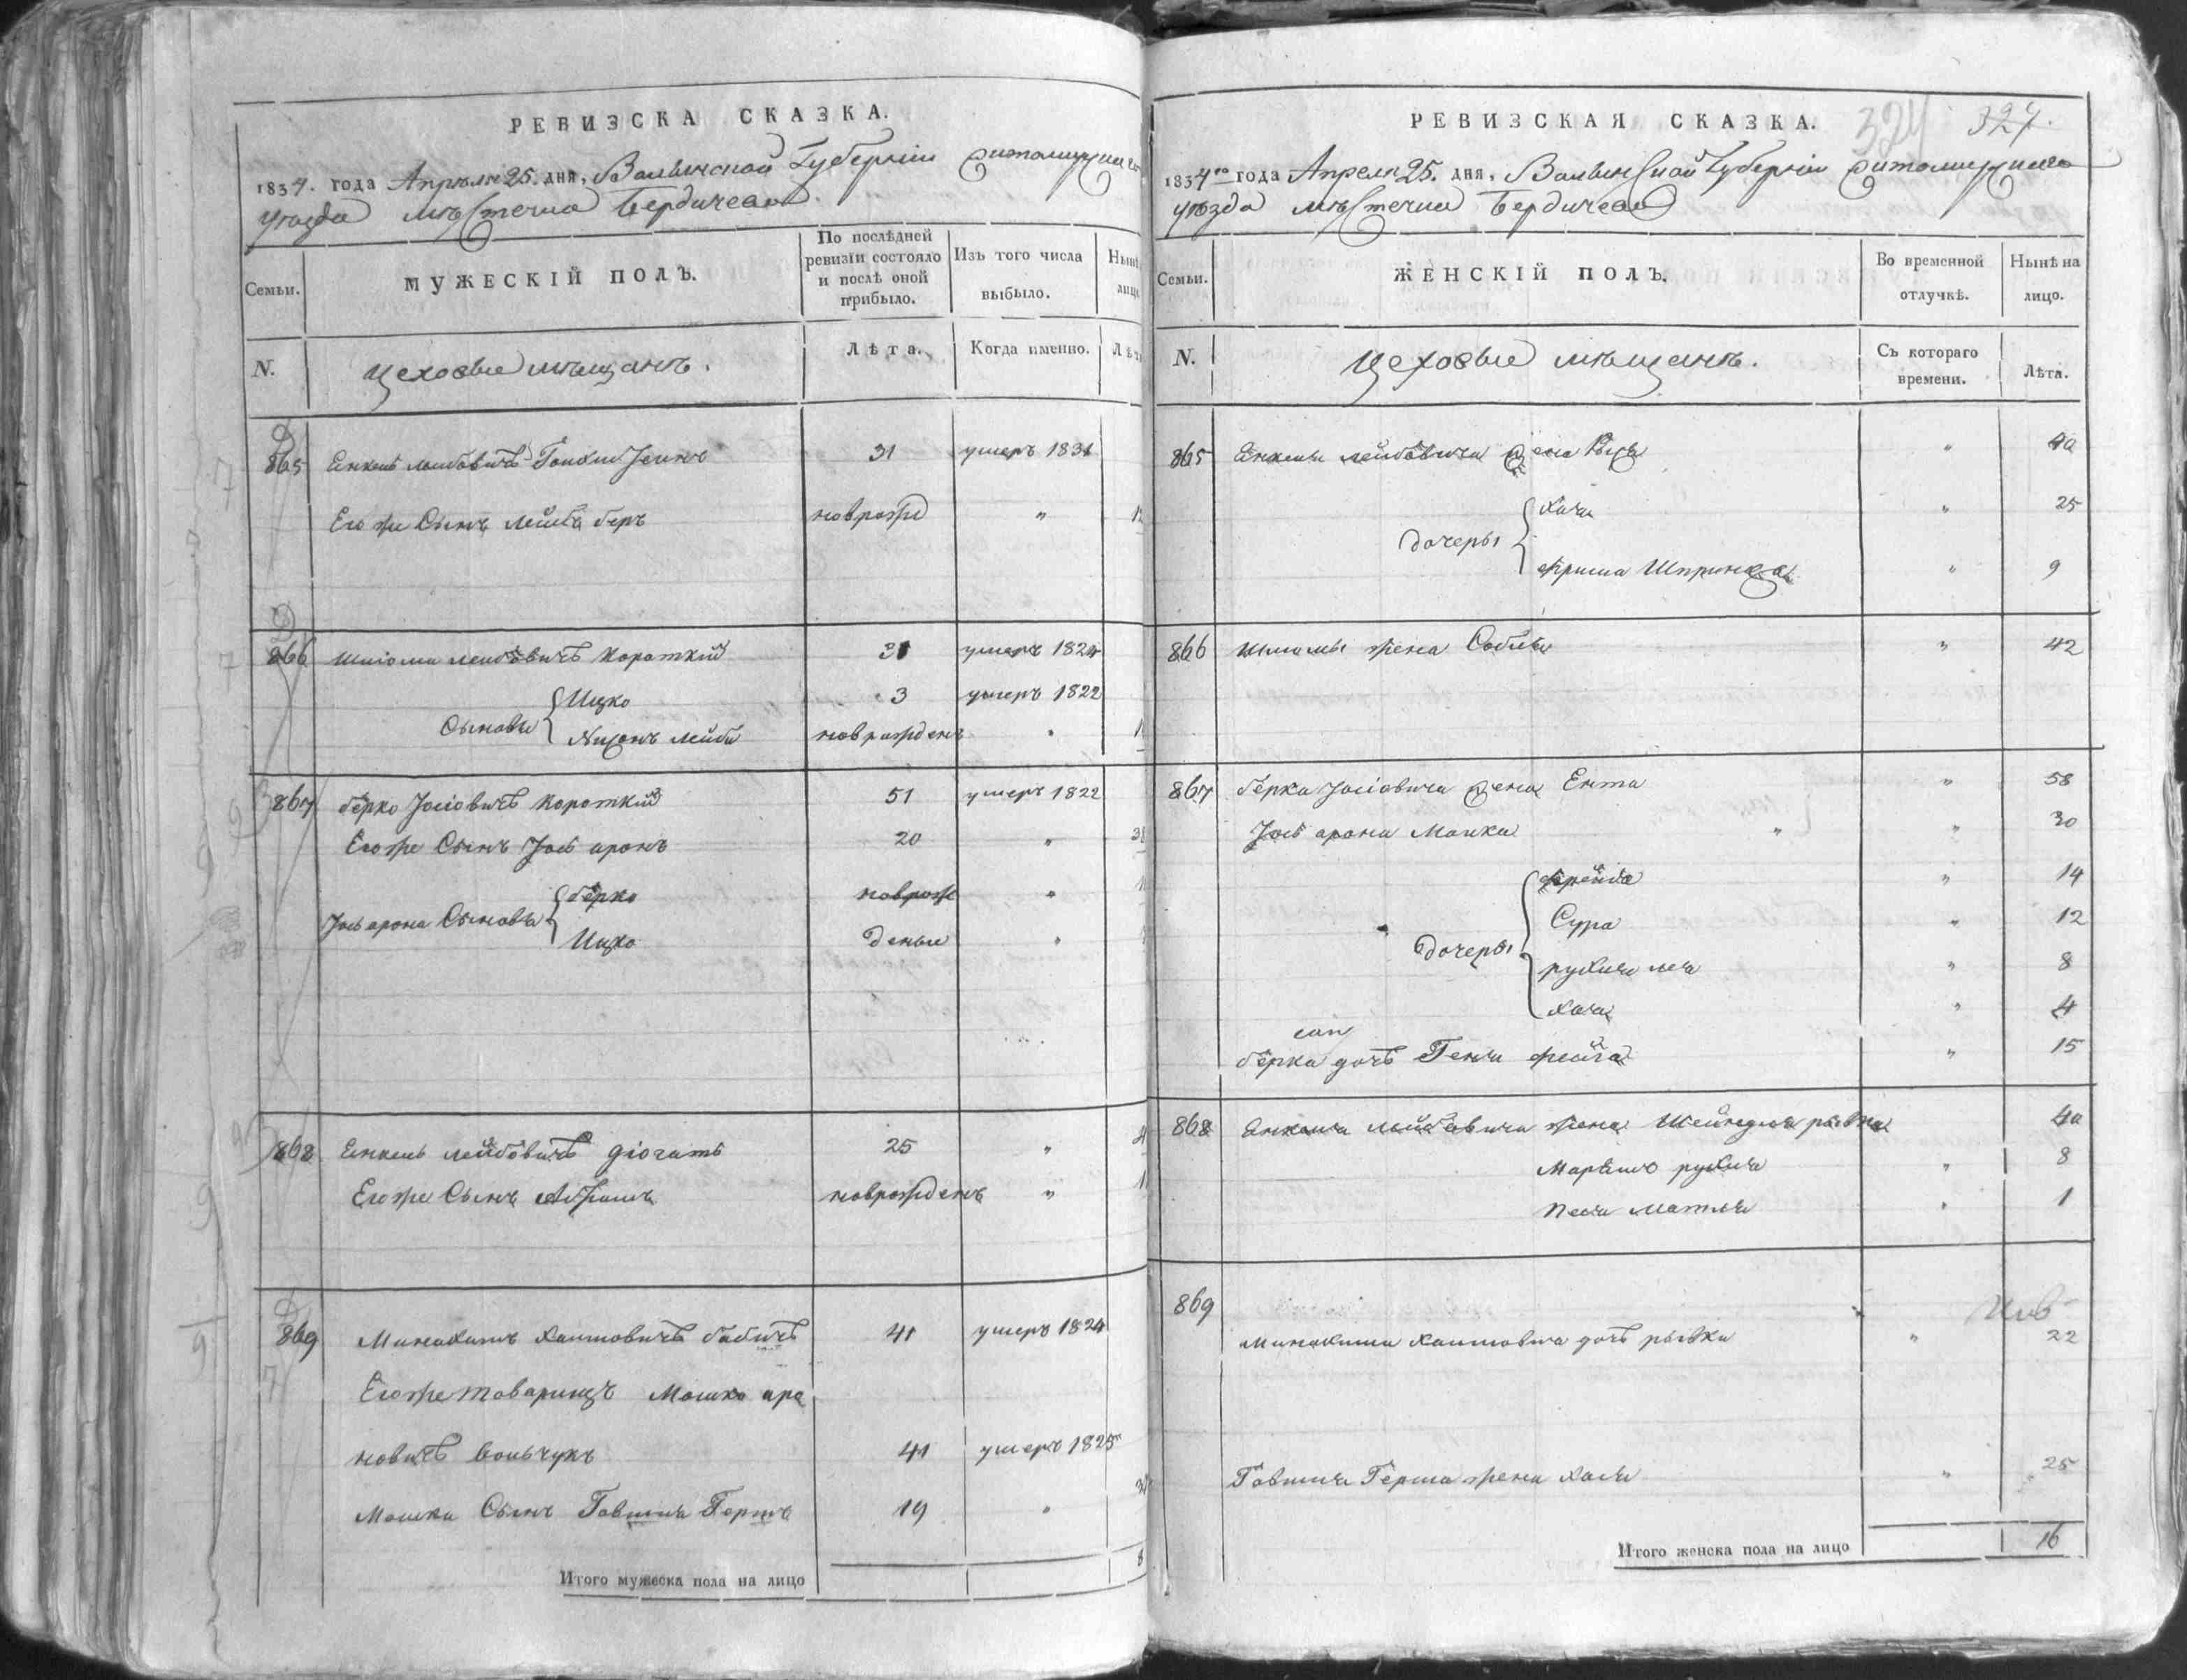 РЕВИЗСКА СКАЗКА.
1834. года Апрѣля 25. дня, Волынской Губерніи Житомирскаго
уѣзда мѣстечка Бердичева.
Семьи.
МУЖЕСКІЙ ПОЛЪ.
По послѣдней ревизіи состояло и послѣ оной прибыло.
Изъ того числа выбыло.
N.
Цеховые мѣщанъ.
Лѣта.
Когда именно.
865 Енкель Лейбовичъ 31 умеръ 1831
Его же Сынъ Лейба беръ новрожд " 12
866 Шліома Лейбовичъ Короткій 31 умеръ 1824
Сыновья
Ицко 3 умеръ 1822
Лейба новрожденъ "
867 Берко Іосіовичъ Короткій 51 умеръ 1822
Его же Сынъ Іось аронъ 20 "
Іось арона Сыновья
берко новрож "
Ицко деные "
868 Енкель Лейбовичъ 25 "
Его же Сынъ новрожденъ "
869 Минахимъ Хаимовичъ бабичъ 41 умеръ 1824
Его же товарищъ Мошко аро
новичъ 41 умеръ 1825
Мошка Сынъ Гершъ 19 "
Итого мужеска пола на лицо 8
РЕВИЗСКАЯ СКАЗКА.
324 324.
1834го года Апреля 25. дня, Волынской Губерніи Житомирскаго
уѣзда мѣстечка Бердичева
Семьи.
ЖЕНСКІЙ ПОЛЪ.
Во временной отлучкѣ.
Нынѣ на лицо.
N.
Цеховые мѣщанъ.
Съ котораго времени.
Лѣта.
865 Енкеля Лейбовича жена " 40
дочеры
Хая " 25
Шпринца " 9
866 Шліомы жена " 42
867 берка Іосіовича жена Ента " 58
Іось арона Малка " " 30
дочеры
фрейда " 14
Сура " 12
рухля леа " 8
Хая " 4
берка дочь Геня фейга " 15
868 Енкеля Лейбовича жена Шейндля рывка 40
рухля " 8
Песя Матля " 1
869
Минахима Хаимовича дочь рывка " 22
Герша жена Хая " 25
Итого женска пола на лицо 16